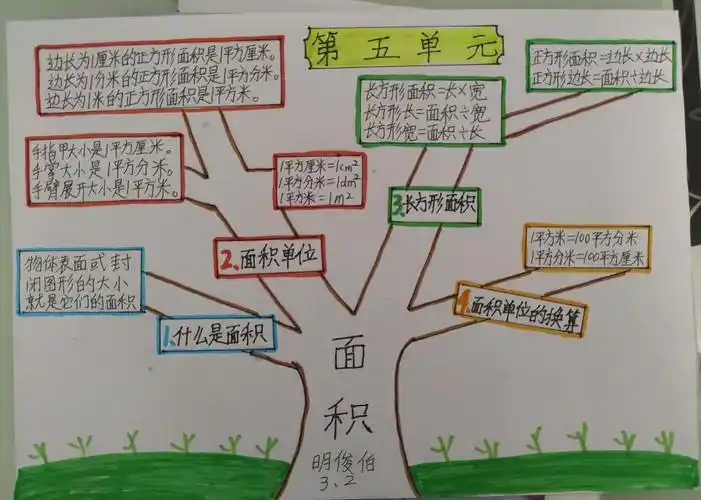 第五单元
边长为1厘米的正方形面积是1平方厘米。
边长为1分米的正方形面积是1平方分米。
边长为1米的正方形面积是1平方米。
手指甲大小是1平方厘米。
手掌大小是1平方分米。
手臂展开大小是1平方米。
1平方厘米=1cm²
1平方分米=1dm²
1平方米=1m²
2、面积单位
物体表面或封
闭图形的大小
就是它们的面积
1、什么是面积
长方形面积=长×宽
长方形长=面积÷宽
长方形宽=面积÷长
正方形面积=边长×边长
正方形边长=面积÷边长
3、长方形面积
1平方米=100平方分米
1平方分米=100平方厘米
4、面积单位的换算
面
积
明俊伯
3、2